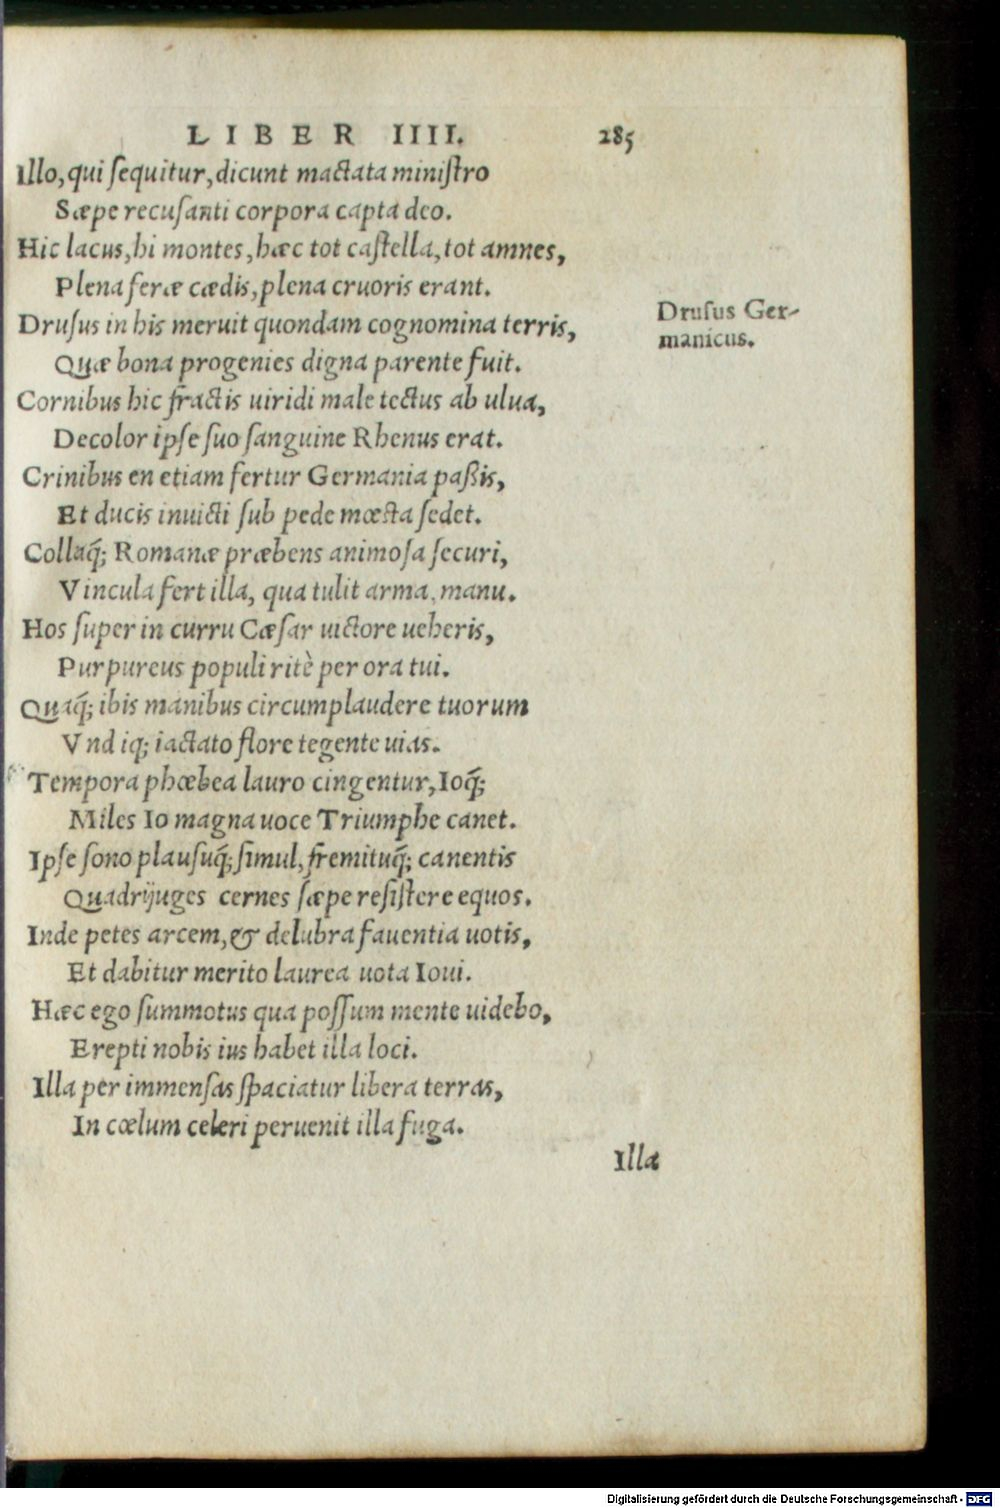 LIBER IIII. 285
Illo, qui ſequitur, dicunt mactata miniſtro
Sæpe recuſanti corpora capta deo.
Hic lacus, hi montes, hæc tot caſtella, tot amnes,
Plena feræ cædis, plena cruoris erant.
Druſus in his meruit quondam cognomina terris,
Quæ bona progenies digna parente fuit.
Cornibus hic fractis uiridi male tectus ab ulua,
Decolor ipſe ſuo ſanguine Rhenus erat.
Crinibus en etiam fertur Germania paßis,
Et ducis inuicti ſub pede mœſta ſedet.
Collaq́; Romanæ præbens animoſa ſecuri,
Vincula fert illa, qua tulit arma, manu.
Hos ſuper in curru Cæſar uictore ueheris,
Purpureus populi ritè per ora tui.
Quaq́; ibis manibus circumplaudere tuorum
Vndiq; iactato flore tegente uias.
Tempora phœbea lauro cingentur, Ioq́;
Miles Io magna uoce Triumphe canet.
Ipſe ſono plauſuq́; ſimul, fremituq́; canentis
Quadrijuges cernes ſæpe reſiſtere equos.
Inde petes arcem, & delubra fauentia uotis,
Et dabitur merito laurea uota Ioui.
Hæc ego ſummotus qua poſſum mente uidebo,
Erepti nobis ius habet illa loci.
Illa per immenſas ſpaciatur libera terras,
In cœlum celeri peruenit illa fuga.
Illa
Druſus Ger-
manicus.
Digitalisierung gefördert durch die Deutsche Forschungsgemeinschaft - DFG